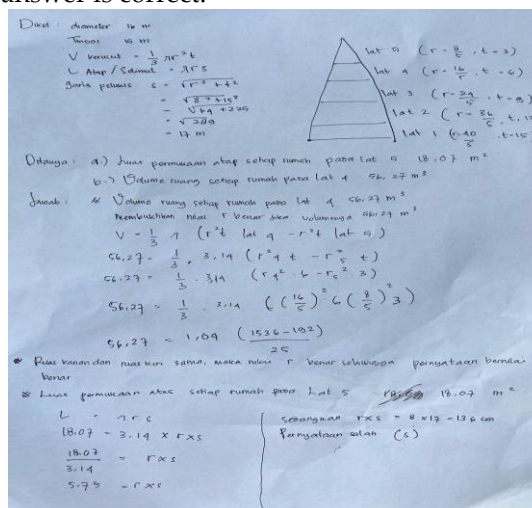 answer is correct.
Diket : diameter 16 m
Tinggi 15 m
V kerucut = 1/3 πr²t
L Atap / Selimut = πrs
Garis pelukis s = √r² + t²
= √8² + 15²
= √64 + 225
= √289
= 17 m
lat 5 (r = 8/5, t = 3)
lat 4 (r = 16/5, t = 6)
lat 3 (r = 24/5, t = 9)
lat 2 (r = 36/5, t = 12
lat 1 (r = 40/5, t = 15
Ditanya : a.) Luas permukaan atap setiap rumah pada lat 5 18.07 m²
b.) Volume ruang setiap rumah pada lat 4 56,27 m³
Jawab : * Volume ruang setiap rumah pada lat 4 56,27 m³
Membuktikan nilai r benar jika volumenya 56,27 m³
V = 1/3 π (r²t lat 4 - r²t lat 5)
56,27 = 1/3 . 3,14 (r²4 t - r²5 t)
56.27 = 1/3 . 3,14 (r4² . 6 - r5² . 3)
56.27 = 1/3 . 3.14 ((16/5)² 6 (8/5)² 3)
56,27 = 1,04 (1536 - 192 / 25)
* Ruas kanan dan ruas kiri sama, maka nilai r benar sehingga pernyataan bernilai
benar
* Luas permukaan atas setiap rumah pada Lat 5 18.07 m²
L = π r s
18.07 = 3.14 x r x s
18.07 / 3.14 = r x s
5.75 = r x s
Sedangkan r x s = 8 x 17 = 136 cm
Pernyataan salah (s)